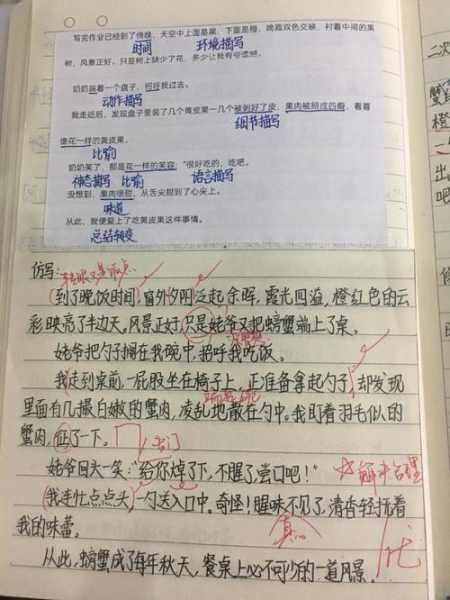 写完作业已经到了傍晚，天空中上面是黑，下面是橙，晚霞双色交映，衬着中间的果
时间 环境描写
树，风景正好。只是树上缺少了花，多少让我有些遗憾。
奶奶端着一个盘子，招呼我过去。
动作描写
我走近后，发现盘子里装了几个黄皮果一几个被剥好了皮，果肉被掰成四瓣，看着
细节描写
像花一样的黄皮果。
比喻
奶奶笑了，都是花一样的笑容，“很好吃的，吃吧。
神态描写 比喻 语言描写
没想到，果肉很甜，从舌尖甜到了心尖上。
味道
从此，我便爱上了吃黄皮果这件事情。
总结转变
仿写：
到了晚饭时间，窗外夕阳泛起余晖，霞光四溢，橙红色的云
彩映亮了半边天。风景正好，只是姥爷又把螃蟹端上了桌。
姥爷把勺子搁在我碗中，招呼我吃饭。
我走到桌前，一屁股坐在椅子上，正准备拿起勺子，却发现
里面有几撮白嫩的蟹肉，凌乱地散在勺中。我盯着羽毛似的
蟹肉，怔了一下。
姥爷回头一笑：“给你焯了下，不腥了，尝口吧！”
我连忙点点头，一勺送入口中。奇怪！腥味不见了，清香轻抚着
我的味蕾。
从此，螃蟹成了每年秋天，餐桌上必不可少的一道风景。
二次
蟹
橙
出
吧